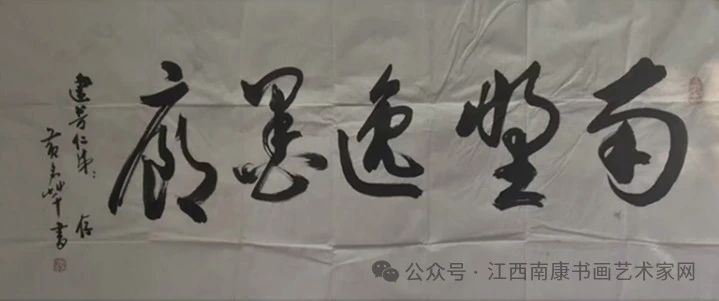 南埜逸墨廊
建芳仁弟 存
黄 书
公众号 · 江西南康书画艺术家网